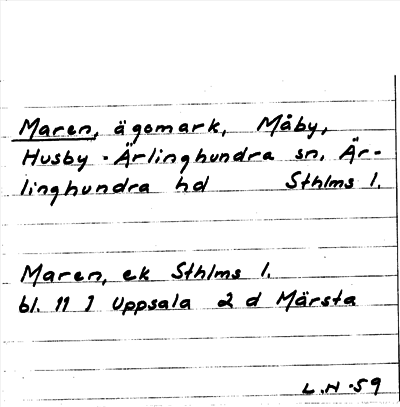 Maren, ägomark, Måby,
Husby-Ärlinghundra sn, Är-
linghundra hd Sthlms l.
Maren, ek Sthlms l.
bl. 11 I Uppsala 2 d Märsta
L.N -59